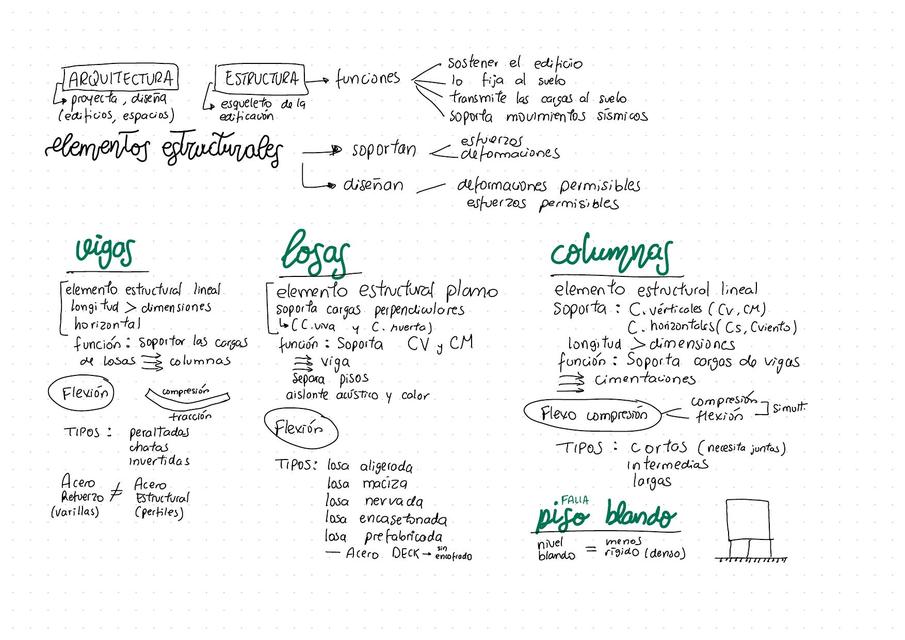 ARQUITECTURA
proyecta, diseña
(edificios, espacios)
ESTRUCTURA
esqueleto de la
edificación
funciones
sostener el edificio
lo fija al suelo
transmite las cargas al suelo
soporta movimientos sísmicos
elementos estructurales
soportan
esfuerzos
deformaciones
diseñan
deformaciones permisibles
esfuerzos permisibles
vigas
elemento estructural lineal
longitud > dimensiones
horizontal
función: soportar las cargas
de losas ⇒ columnas
Flexión
compresión
tracción
TIPOS: peraltadas
chatas
invertidas
Acero
Refuerzo
(varillas)
≠
Acero
Estructural
(perfiles)
losas
elemento estructural plano
soporta cargas perpendiculares
↳ (C.viva y C. muerta)
función: Soporta CV y CM
⇒ viga
separa pisos
aislante acústico y calor
Flexión
TIPOS: losa aligerada
losa maciza
losa nervada
losa encasetonada
losa prefabricada
— Acero DECK → sin
encofrado
columnas
elemento estructural lineal
Soporta: C. vérticales (CV, CM)
C. horizontales (Cs, Cviento)
longitud > dimensiones
función: Soporta cargas de vigas
⇒ cimentaciones
Flexo compresión
compresión
flexión
simult.
TIPOS: cortas (necesita juntas)
intermedias
largas
FALLA
piso blando
nivel
blando
=
menos
rígido (denso)